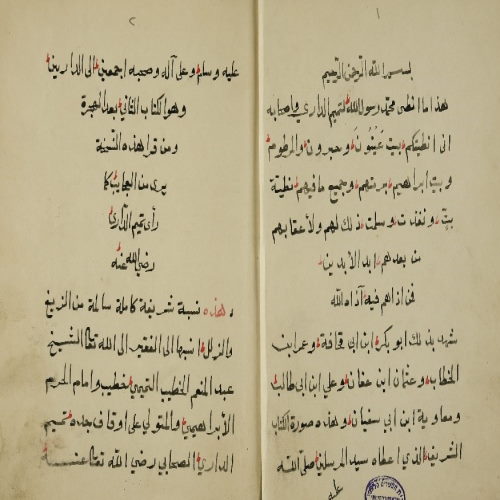 ١
بسم الله الرحمن الرحيم
هذا ما انطى محمد رسول الله لتميم الداري واصحابه
انى انطيتكم بيت عَيْنُونَ وحبرون والمرطوم
وبيت ابراهيم برمتهم وجميع ما فيهم نطية
بتّ ونفذت وسلمت ذلك لهم ولأعقابهم
من بعدهم ابد الأبدين
فمن اذاهم فيه آذاه الله
شهد بذلك ابو بكر ابن ابي قحافة وعمر ابن
الخطاب وعثمان ابن عفان وعلي ابن ابي طالب
ومعاوية ابن ابي سفيان وهذه صورة الكتاب
الشريف الذي اعطاه سيد المرسلين صلى الله
عليه
٢
عليه وسلم وعلى آله وصحبه اجمعين الى الداريين
وهو الكتاب الثاني بعد الهجرة
ومن قرا هذه النسخة
يرى من العجايب كما
رأى تميم الدّاري
رضي الله عنه
وهذه نسبة شريفة كاملة سالمة من الزيغ
والزلل انسبها الى الفقير الى الله تعالى الشيخ
عبد المنعم الخطيب التميمي خطيب وامام الحرم
الأبراهيمي والمتولي على اوقاف جده تميم
الداري الصحابي رضي الله تعالى عنه